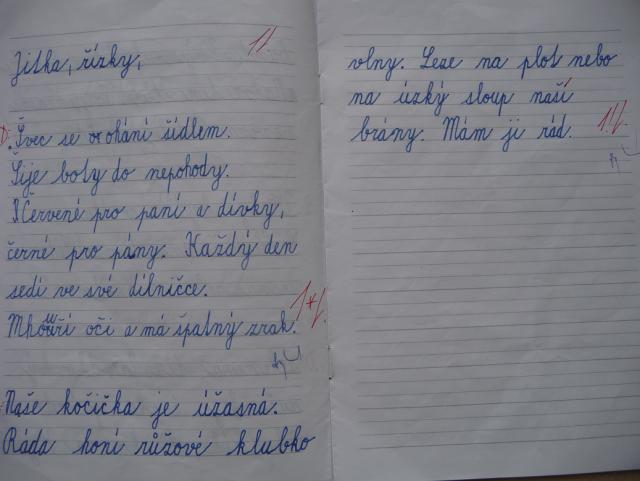 Jitka, řízky,
1!
Švec se ohání šídlem.
Šije boty do nepohody.
Červené pro paní a dívky,
černé pro pány. Každý den
sedí ve své dílničce.
1*!
Mhouří oči a má špatný zrak.
Naše kočička je úžasná.
Ráda honí růžové klubko
vlny. Leze na plot nebo
na úzký sloup naší
brány. Mám ji rád.
1!